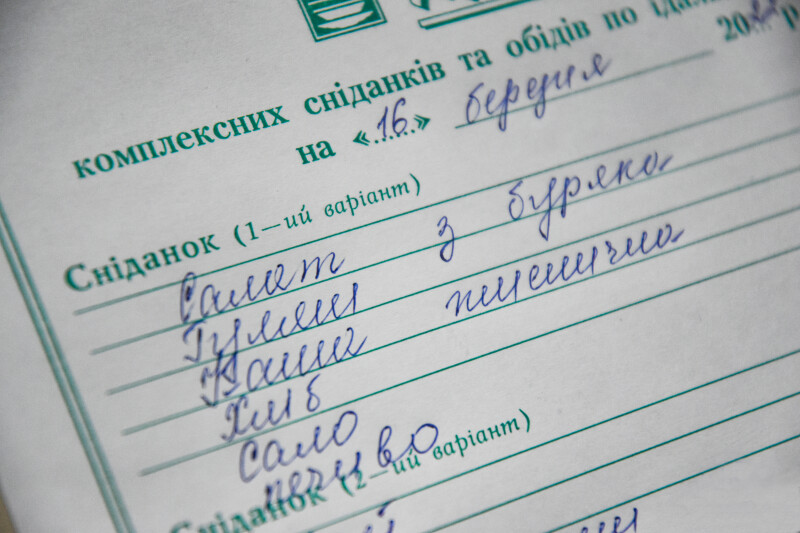 комплексних сніданків та обідів по
на «16» березня 20 р
Сніданок (1—ий варіант)
Салат з буряка
Гуляш
Каша пшенична
Хліб
Сало
печиво
Сніданок (2—ий варіант)